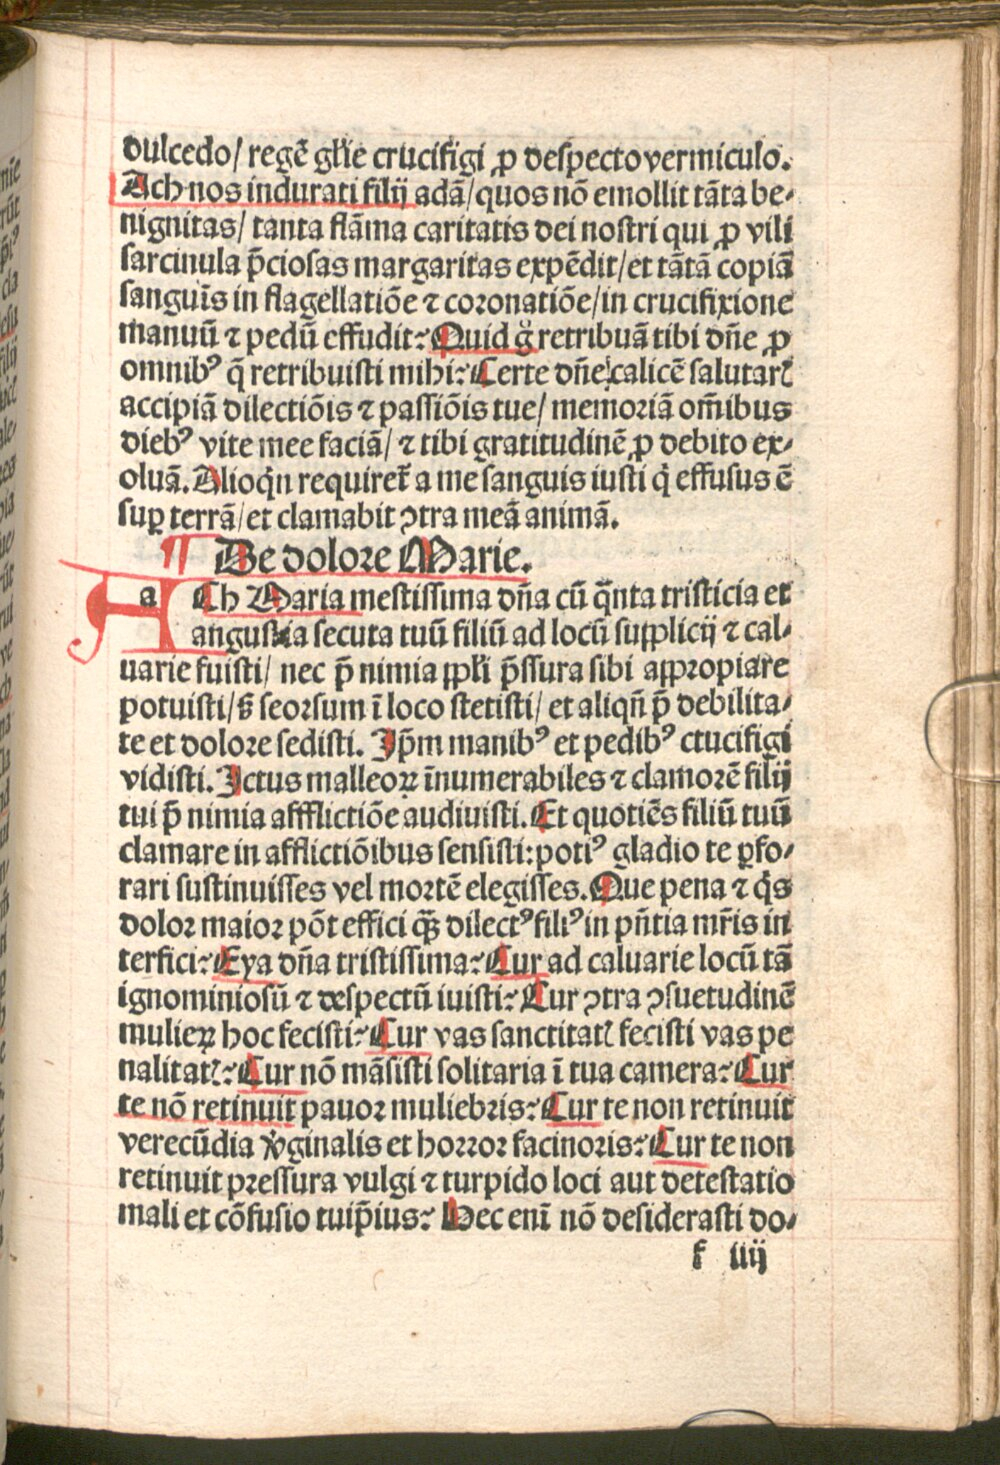 dulcedo/ regē gl'ie crucifigi ꝓ despecto vermiculo.
Ach nos indurati filij adā/ quos nō emollit tāta be-
nignitas/ tanta flāma caritatis dei nostri qui ꝓ vili
sarcinula p̄ciosas margaritas expēdit/ et tātā copiā
sanguīs in flagellatiōe ⁊ coronatiōe/ in crucifixione
manuū ⁊ pedū effudit? Quid g̊ retribuā tibi dn̄e ꝓ
omnibꝰ q̄ retribuisti mihi? Certe dn̄e calicē salutarꝭ
accipiā dilectiōis ⁊ passiōis tue/ memoriā om̄ibus
diebꝰ vite mee faciā/ ⁊ tibi gratitudinē ꝓ debito ex-
oluā. Alioq̇n requiret᷑ a me sanguis iusti q̇ effusus ē
suꝑ terrā/ et clamabit ꝯtra meā animā.
¶ De dolore Marie.
Ach Maria mestissima dn̄a cū q̄nta tristicia et
angustia secuta tuū filiū ad locū supplicij ⁊ cal-
uarie fuisti/ nec p̄ nimia ppl'i p̄ssura sibi appropiare
potuisti/ s̄ seorsum ī loco stetisti/ et aliqn̄ p̄ debilita-
te et dolore sedisti. Ip̄m manibꝰ et pedibꝰ ctucifigi
vidisti. Ictus malleoꝝ īnumerabiles ⁊ clamorē filij
tui p̄ nimia affflictiōe audiuisti. Et quotiēs filiū tuū
clamare in afflictiōibus sensisti: potiꝰ gladio te ꝑfo-
rari sustinuisses vel mortē elegisses. Que pena ⁊ q̇s
dolor maior pōt effici qꝫ̄ dilectꝰ filiꝰ in pn̄tia mr̄is in
terfici? Eya dn̄a tristissima? Cur ad caluarie locū tā
ignominiosū ⁊ despectū iuisti? Cur ꝯtra ꝯsuetudinē
mulieꝝ hoc fecisti? Cur vas sanctitatꝭ fecisti vas pe
nalitatꝭ? Cur nō māsisti solitaria ī tua camera? Cur
te nō retinuit pauor muliebris? Cur te non retinuit
verecūdia v̇ginalis et horror facinoris? Cur te non
retinuit pressura vulgi ⁊ turpido loci aut detestatio
mali et cōfusio tuip̄ius? Hec enī nō desiderasti do-
f iiij